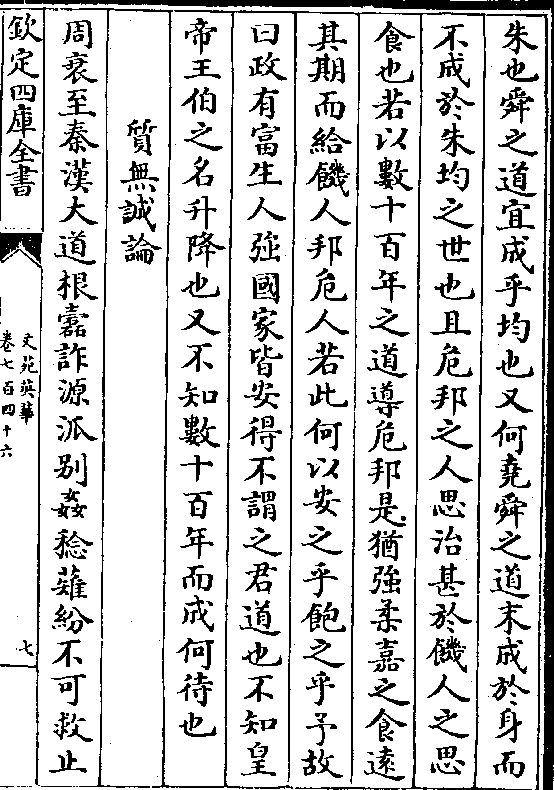 朱也舜之道宜成乎均也又何堯舜之道末成於身而
不成於朱均之世也且危邦之人思治甚於饑人之思
食也若以數十百年之道導危邦是猶強柔嘉之食遠
其期而給饑人邦危人若此何以安之乎飽之乎予故
曰政有富生人強國家皆安得不謂之君道也不知皇
帝王伯之名升降也又不知數十百年而成何待也
質無誠論
周衰至秦漢大道根蠹詐源派别姦稔薙紛不可救止
欽定四庫全書
文苑英華
卷七百四十六
七